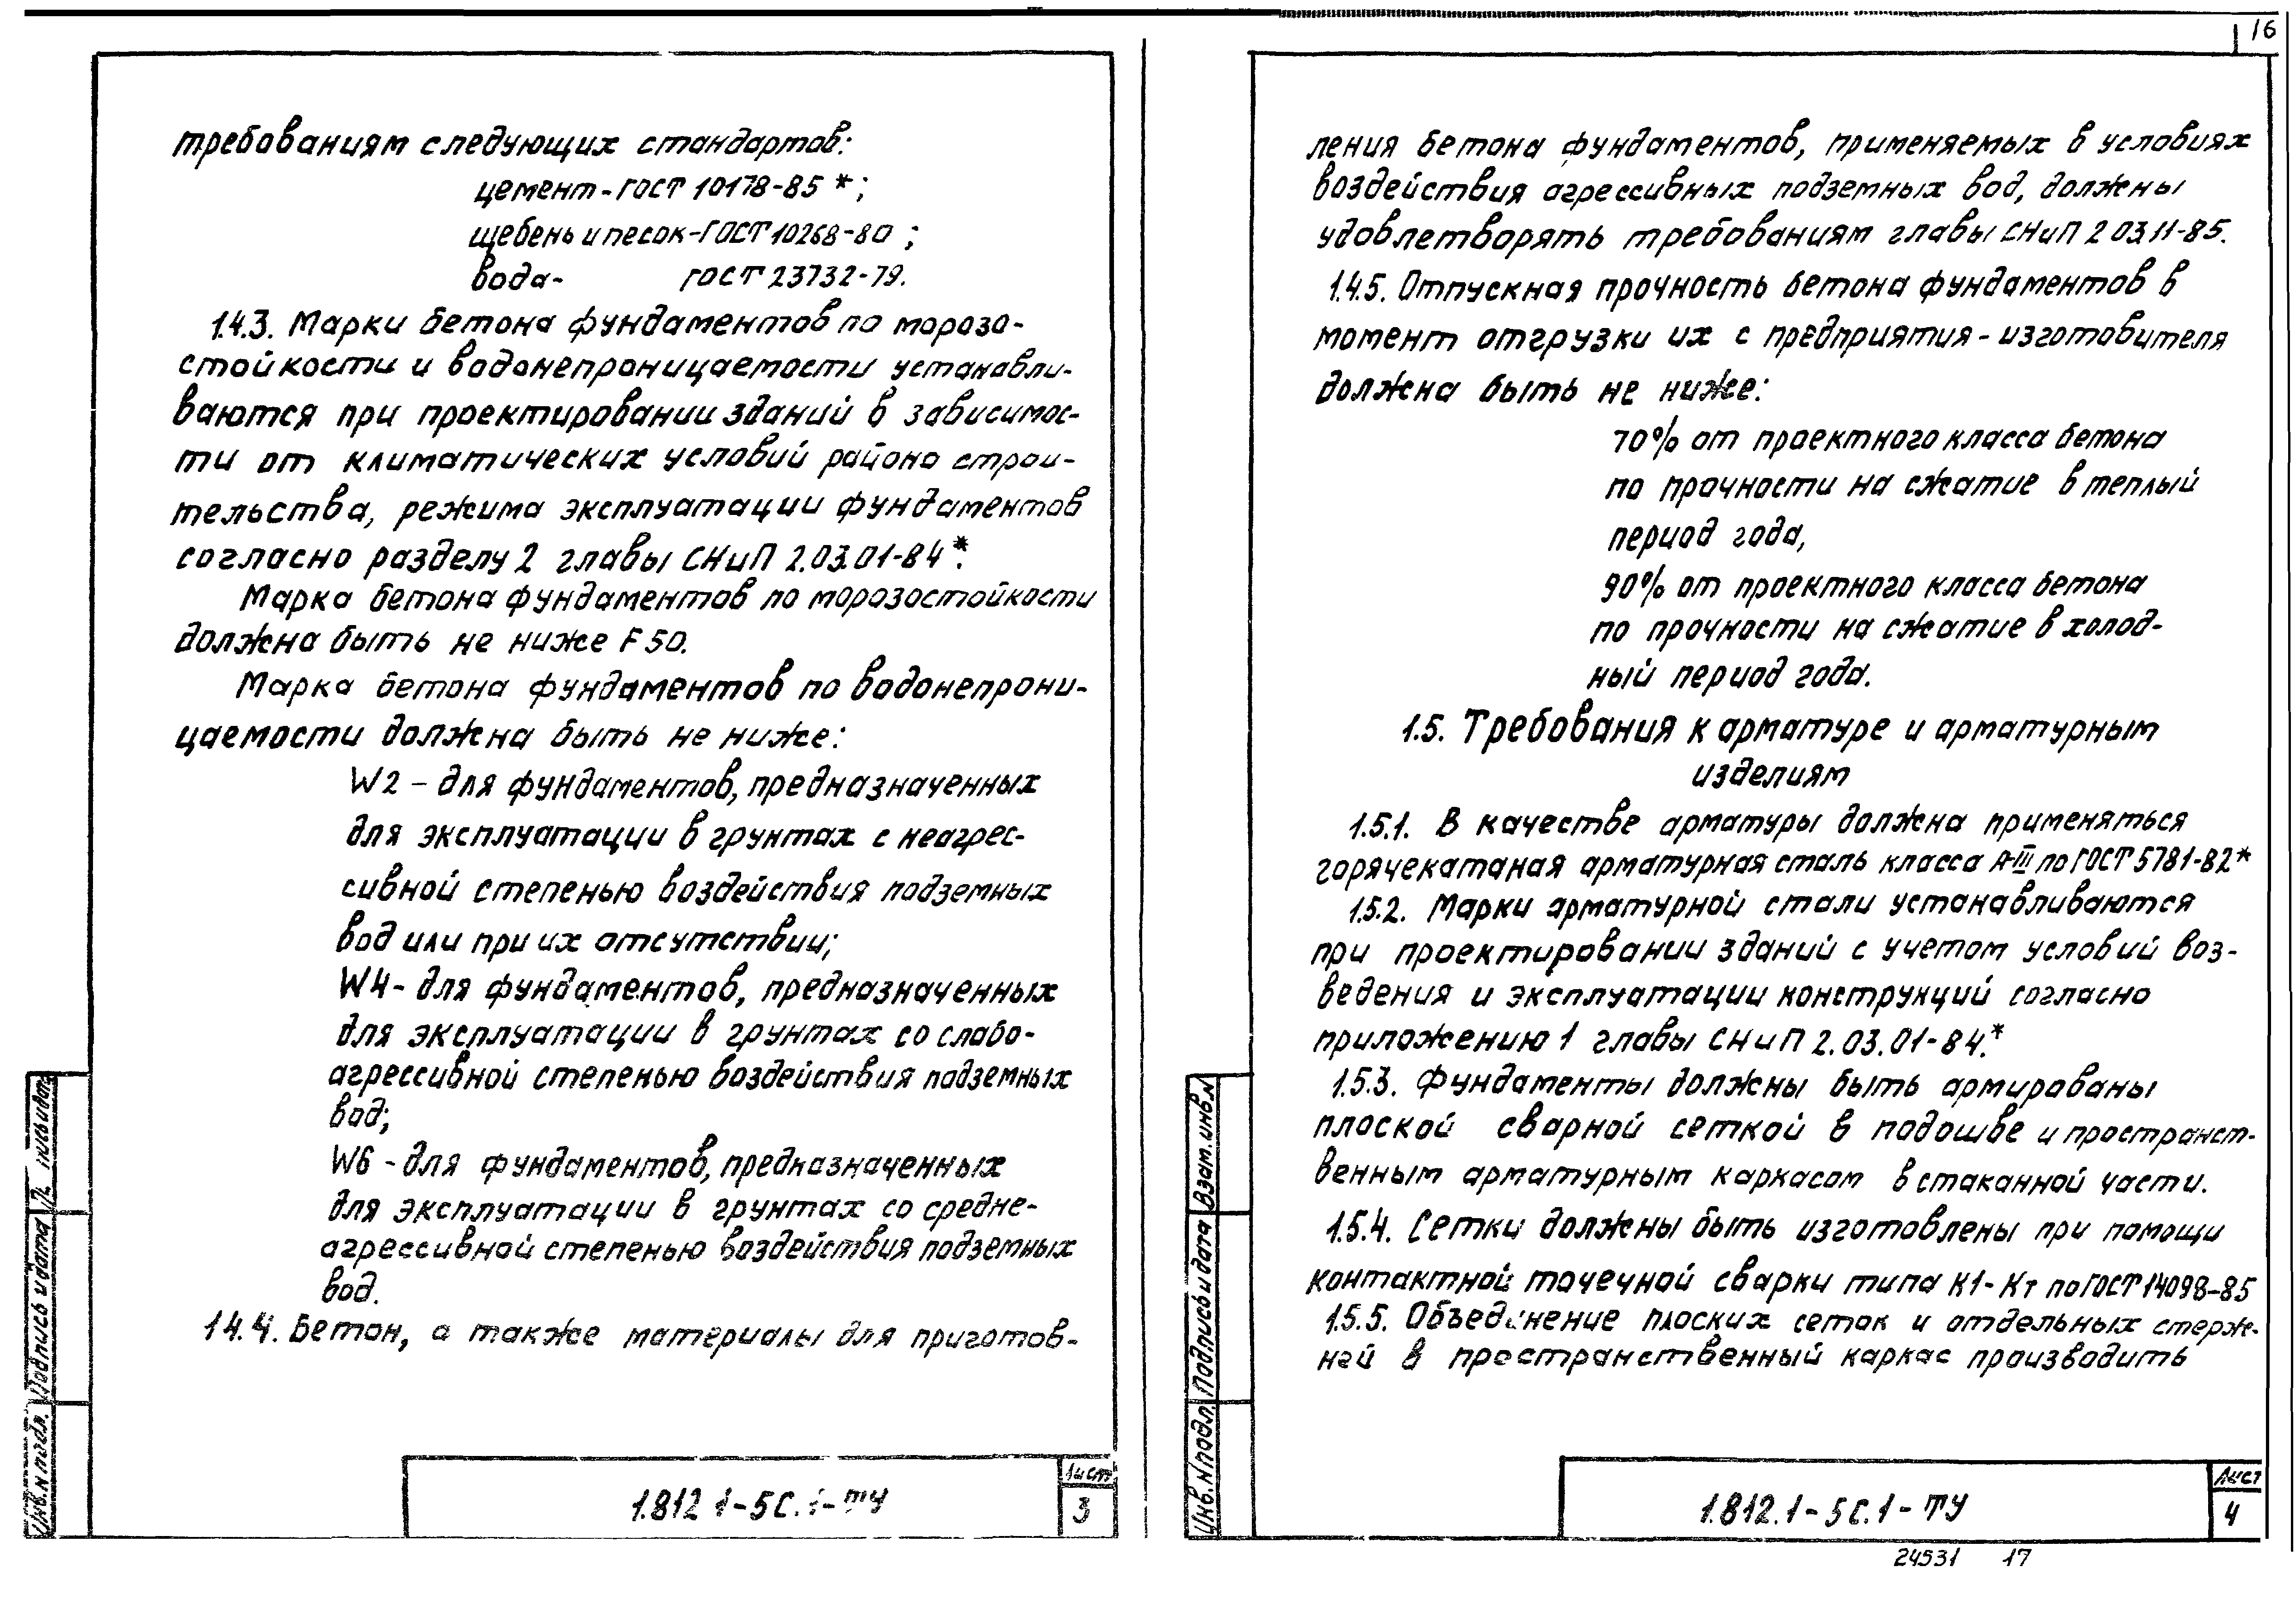 16
требованиям следующих стандартов:
цемент-ГОСТ 10178-85 *;
щебень и песок-ГОСТ 10268-80 ;
вода- ГОСТ 23732-79.
1.4.3. Марки бетона фундаментов по морозо-
стойкости и водонепроницаемости устанавли-
ваются при проектировании зданий в зависимос-
ти от климатических условий района строи-
тельства, режима эксплуатации фундаментов
согласно разделу 2 главы СНиП 2.03.01-84*.
Марка бетона фундаментов по морозостойкости
должна быть не ниже F50.
Марка бетона фундаментов по водонепрони-
цаемости должна быть не ниже:
W2 - для фундаментов, предназначенных
для эксплуатации в грунтах с неагрес-
сивной степенью воздействия подземных
вод или при их отсутствии;
W4- для фундаментов, предназначенных
для эксплуатации в грунтах со слабо-
агрессивной степенью воздействия подземных
вод;
W6 - для фундаментов, предназначенных
для эксплуатации в грунтах со средне-
агрессивной степенью воздействия подземных
вод.
1.4.4. Бетон, а также материалы для приготов-
Инв.N подл. Подпись и дата
1.812 1-5С.1-ТУ
Лист
3
ления бетона фундаментов, применяемых в условиях
воздействия агрессивных подземных вод, должны
удовлетворять требованиям главы СНиП 2 03.11-85.
1.4.5. Отпускная прочность бетона фундаментов в
момент отгрузки их с предприятия-изготовителя
должна быть не ниже:
70% от проектного класса бетона
по прочности на сжатие в теплый
период года,
90% от проектного класса бетона
по прочности на сжатие в холод-
ный период года.
1.5. Требования к арматуре и арматурным
изделиям
1.5.1. В качестве арматуры должна применяться
горячекатаная арматурная сталь класса А-III по ГОСТ 5781-82*
1.5.2. Марки арматурной стали устанавливаются
при проектировании зданий с учетом условий воз-
ведения и эксплуатации конструкций согласно
приложению 1 главы СНиП 2.03.01-84.*
1.5.3. Фундаменты должны быть армированы
плоской сварной сеткой в подошве и пространст-
венным арматурным каркасом в стаканной части.
1.5.4. Сетки должны быть изготовлены при помощи
контактной точечной сварки типа К1-Кт по ГОСТ 14098-85
1.5.5. Объединение плоских сеток и отдельных стерж-
ней в пространственный каркас производить
Инв.N подл. Подпись и дата Взам.инв.N
1.812.1-5С.1-ТУ
Лист
4
24531 17